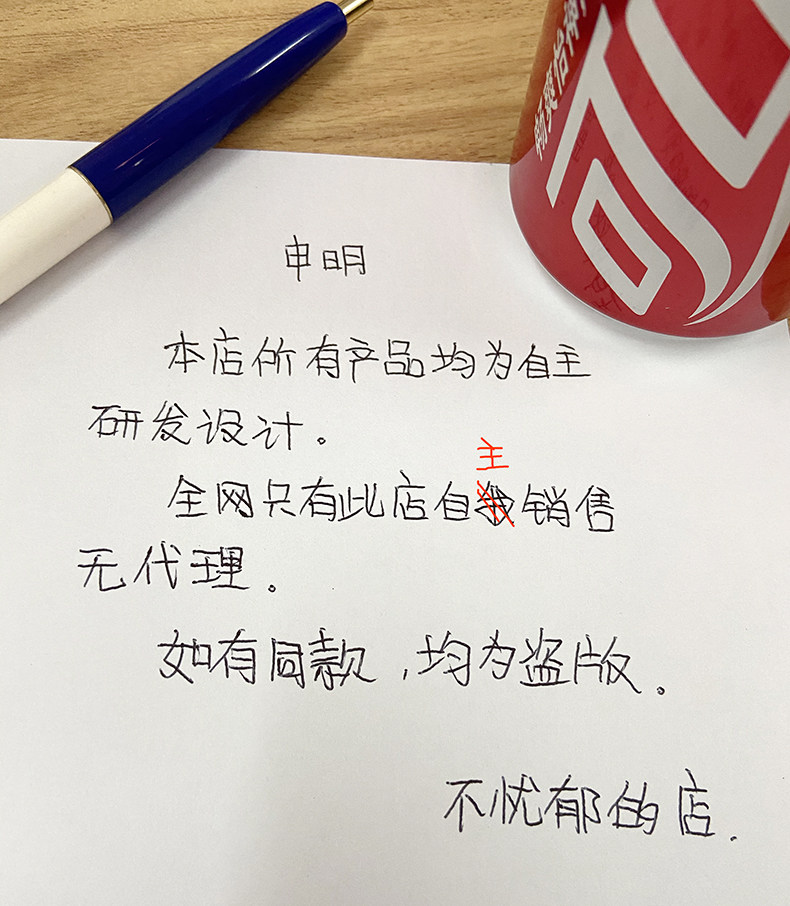 畅爽怡神
申明
本店所有产品均为自主
研发设计。
主
全网只有此店自我销售
无代理。
如有同款，均为盗版。
不忧郁的店.